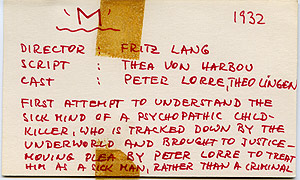 "M" 1932
DIRECTOR : FRITZ LANG
SCRIPT : THEA VON HARBOU
CAST : PETER LORRE, THEO LINGEN
FIRST ATTEMPT TO UNDERSTAND THE
SICK MIND OF A PSYCHOPATHIC CHILD-
KILLER, WHO IS TRACKED DOWN BY THE
UNDERWORLD AND BROUGHT TO JUSTICE—
MOVING PLEA BY PETER LORRE TO TREAT
HIM AS A SICK MAN, RATHER THAN A CRIMINAL